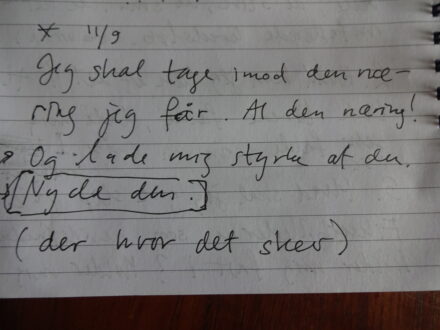 * 11/9
Jeg skal tage imod den næ-
ring jeg får. Al den næring!
Og lade mig styrke af den.
[Nyde den.]
(der hvor det sker)